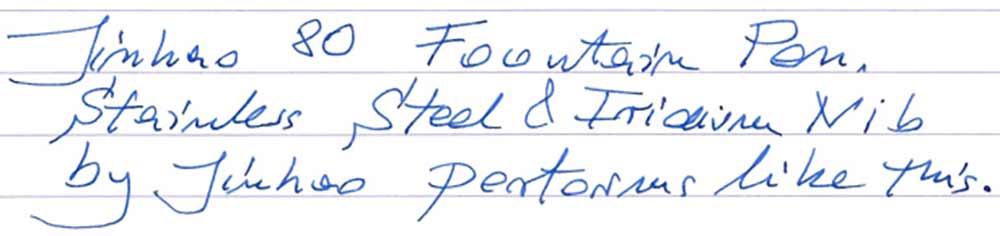 Jinhao 80 Fountain Pen.
Stainless Steel & Iridium Nib
by Jinhao performs like this.